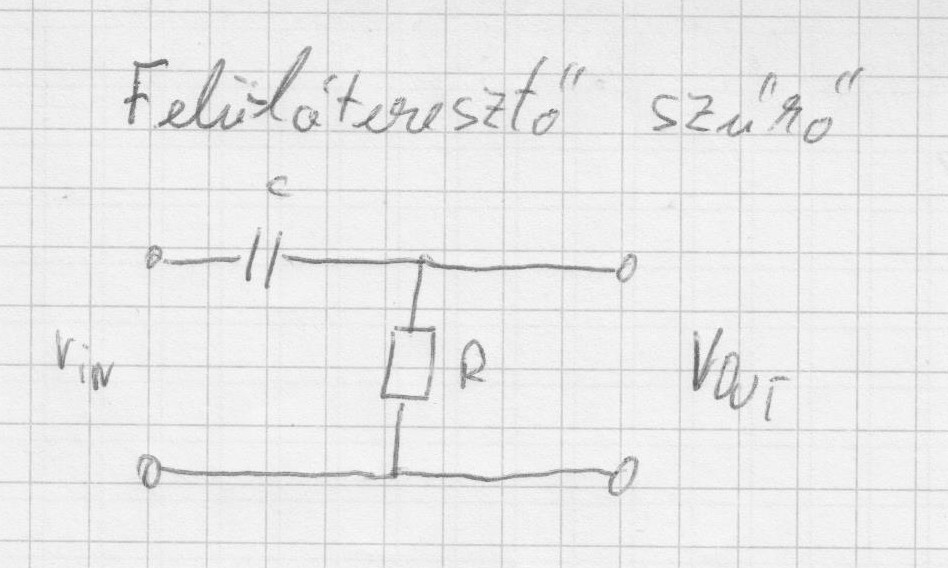 Felüláteresztő szűrő
C
Vin
R
VOUT